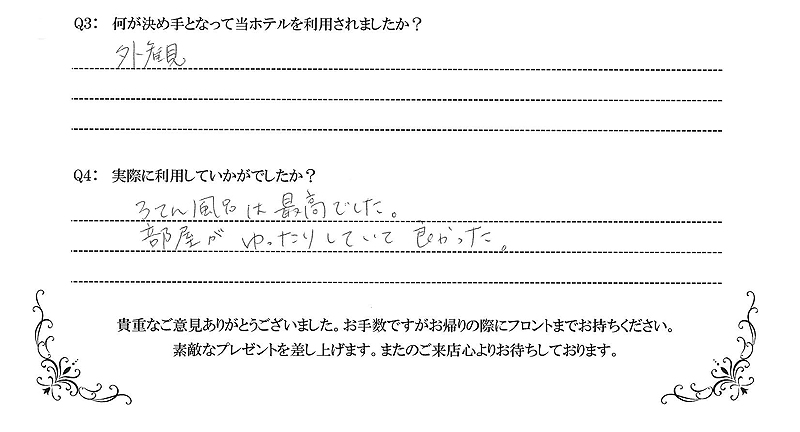 Q3： 何が決め手となって当ホテルを利用されましたか？
外観
Q4： 実際に利用していかがでしたか？
ろてん風呂は最高でした。
部屋がゆったりしていて良かった。
貴重なご意見ありがとうございました。お手数ですがお帰りの際にフロントまでお持ちください。
素敵なプレゼントを差し上げます。またのご来店心よりお待ちしております。